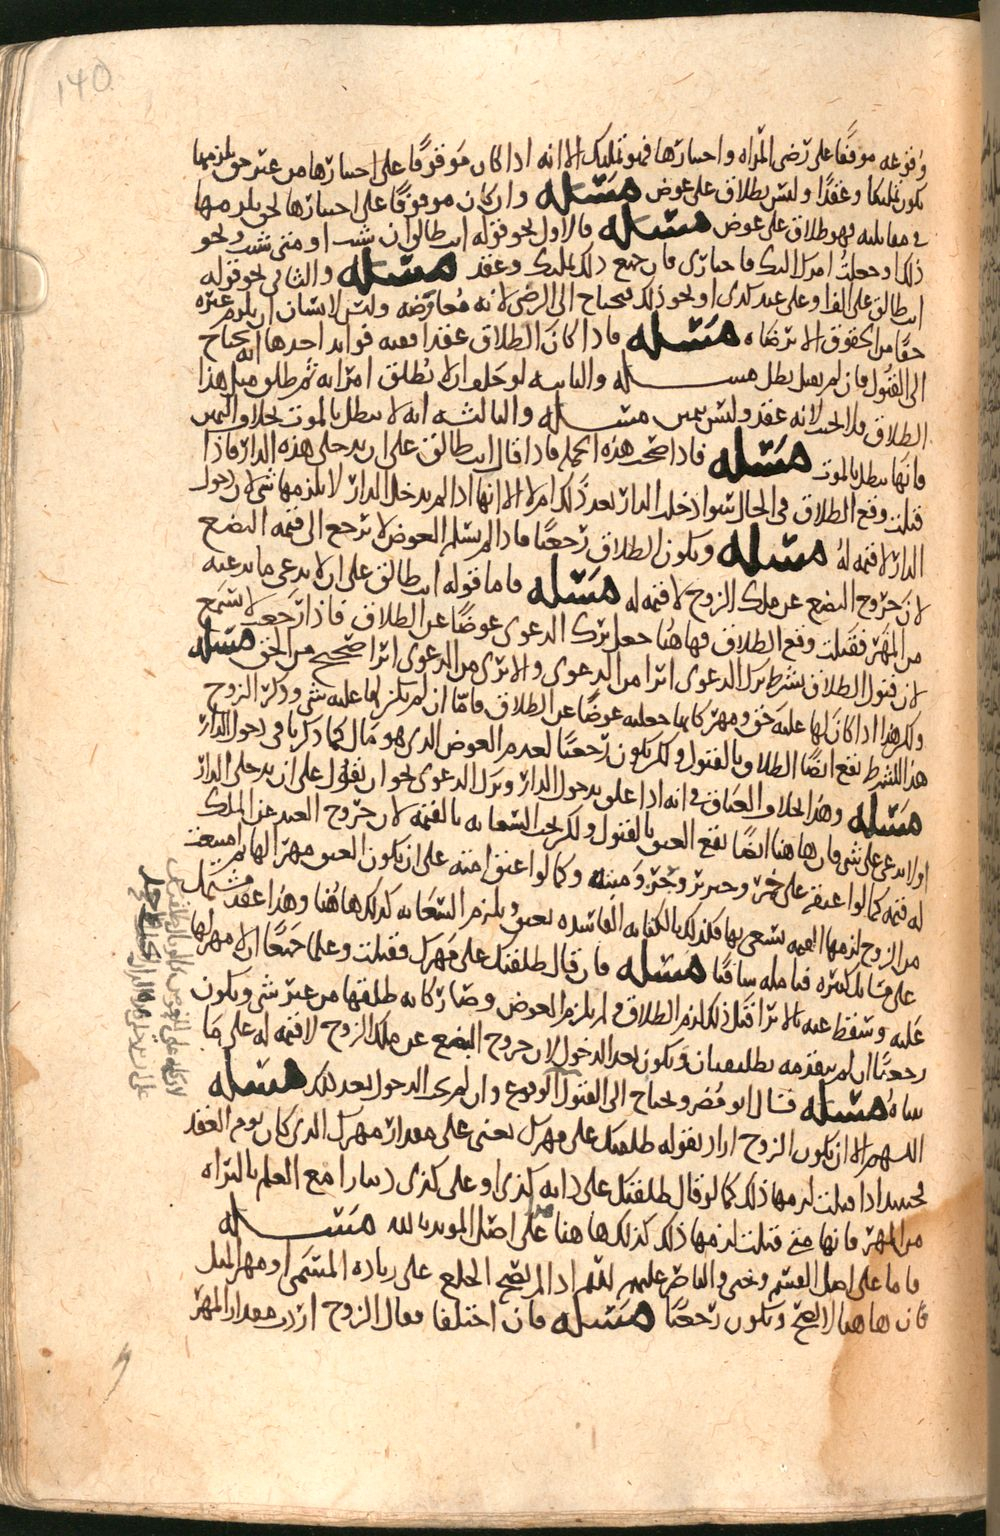 140
وقوعه موقفا على رضى المراه واختيارها فهو تمليك الا انه اذا كان موقوفا على اختيارها من غير حق يلزمها
يكون تمليكا وعقدا وليس بطلاق على عوض مسئله وان كان موقوفا على اختيارها لحق يلزمها
في مقابلته فهو طلاق على عوض مسئله فالاول نحو قوله انت طالق ان شئت او متى شئت ونحو
ذلك او جعلت امرك اليك فاختارى فان جميع ذلك تمليك وعقد مسئله والثانى نحو قوله
انت طالق على الف او على عبد كذى او نحو ذلك فيحتاج الى الرضى لانه معاوضه وليس لانسان ان يلزم غيره
حقا من الحقوق الا برضاه مسئله فاذا كان الطلاق عقدا ففيه فوايد احدها انه يحتاج
الى القبول فان لم يقبل بطل مسئله والثانيه لو حلف ان لا تطلق امراته ثم طلق مثل هذا
الطلاق فلا يحنث لانه عقد وليس بيمين مسئله والثالثه انه لا يبطل بالموت بخلاف اليمين
فانها تبطل بالموت مسئله فاذا صحت هذه الجمله فاذا قال انت طالق على ان تدخلى هذه الدار فاذا
قبلت وقع الطلاق في الحال سوا دخلت الدار بعد ذلك ام لا الا انها اذا لم تدخل الدار لا يلزمها شى لان دخول
الدار لا قيمه له مسئله ويكون الطلاق رجعيا فاذا لم يسلم العوض لا ترجع الى قيمه البضع
لان خروج البضع عن ملك الزوج لا قيمه له مسئله فاما قوله انت طالق على ان لا تدعى ما تدعيه
من المهر فقبلت وقع الطلاق فهاهنا جعل ترك الدعوى عوضا عن الطلاق فاذا رجعت لا تسمع
لان قبول الطلاق بشرط ترك الدعوى ابرا من الدعوى والابرى من الدعوى ابرا صحيح من الحق مسئله
ولكن هذا اذا كان لها عليه حق ومهر كانما جعلته عوضا عن الطلاق فاما ان لم يكن لها عليه شى وذكر الزوج
هذا الشرط يقع ايضا الطلاق بالقبول ولكن يكون رجعيا لعدم العوض الذى هو مال كما ذكرنا في دخول الدار
مسئله وهذا بخلاف العتاق في انه اذا علق بدخول الدار وترك الدعوى نحو ان يقول على ان تدخلى الدار
او لا تدعى على شى فان هاهنا ايضا يقع العتق بالقبول ولكن يجب السعايه بالقيمه لان خروج العبد عن الملك
له قيمه كما لو اعتقه على خمر وخنزير وحر وميته وكما لو اعتق امته على ان يكون العتق مهرا لها ثم امتنعت
من الزوج لزمها القيمه تسعى بها فكذلك بالكتابه الفاسده يعتق ويلزم السعايه كذلك هاهنا وهذا عقد مشتمل
على مسايل كثيره فتامله سابقا مسئله فان قال طلقتك على مهرك فقبلت وعلما جميعا ان لا مهر لها
عليه وسقط عنه بالابرا قبل ذلك لزم الطلاق ولم يلزم العوض وصار كانه طلقها من غير شى ويكون
رجعيا ان لم يتقدمه تطليقتان ويكون بعد الدخول لان خروج البضع عن ملك الزوج لا قيمه له على ما
بيناه مسئله قال ابو مضر ويحتاج الى القبول لوقوع وان لم يجر الدخول بعد ذلك مسئله
اللهم الا ان يكون الزوج اراد بقوله طلقتك على مهرك يعنى على مقدار مهرك الذى كان يوم العقد
فحينئذ اذا قبلت لزمها ذلك كما لو قال طلقتك على دابه كذى او على كذى دينارا مع العلم بالبراه
من المهر فانها متى قبلت لزمها ذلك كذلك هاهنا على اصل المويد بالله مسئله
فاما على اصل القسم ويحيى والناصر عليهم السلم اذا لم يصح الخلع على زياده المسمى او مهر المثل
فان هاهنا لا يصح ويكون رجعيا مسئله فان اختلفا فقال الزوج اردت مقدار المهر